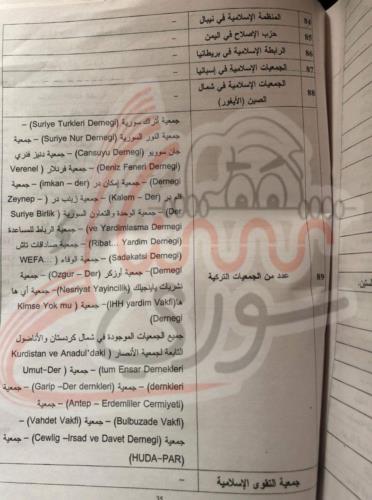 84 المنظمة الإسلامية في نيبال –
85 حزب الإصلاح في اليمن –
86 الرابطة الإسلامية في بريطانيا –
87 الجمعيات الإسلامية في إسبانيا –
88 الجمعيات الإسلامية في شمال –
الصين (الأيغور)
جمعية أتراك سورية (Suriye Turkleri Dernegi) –
جمعية النور السورية (Suriye Nur Dernegi) – جمعية
جان سويو (Cansuyu Dernegi) – جمعية دنيز فنري
(Deniz Feneri Dernegi) – جمعية فرنلار (Verenel
Dernegi) – جمعية إمكان در (imkan – der) – جمعية
قلم در (Kalem – Der) – جمعية زينب در (Zeynep –
Der) – جمعية الوحدة والتعاون السورية (Suriye Birlik
ve Yardimlasma Dernegi) – جمعية الرباط للمساعدة
(Ribat... Yardim Dernegi) – جمعية صادقات تاش
(Sadakatsi Dernegi) – جمعية الوفاء (WEFA...
Dernegi) – جمعية أوزكر (Ozgur – Der) – جمعية
نشريات ياينجيلك (Nesriyat Yayincilik) – جمعية أي ها
ها (IHH yardim Vakfi) – جمعية (Kimse Yok mu
Dernegi)
89 عدد من الجمعيات التركية
جميع الجمعيات الموجودة في شمال كردستان والأناضول
التابعة لجمعية الأنصار (Kurdistan ve Anadul'daki
tum Ensar Dernekleri) – جمعية (Umut–Der
dernkleri) – جمعية (Garip –Der dernkleri) –
جمعية (Antep – Erdemliler Cermiyeti) –
جمعية (Bulbuzade Vakfi) – جمعية (Vahdet Vakfi) –
جمعية (Cewlig –Irsad ve Davet Dernegi) – جمعية
(HUDA-PAR)
جمعية التقوى الإسلامية –
35